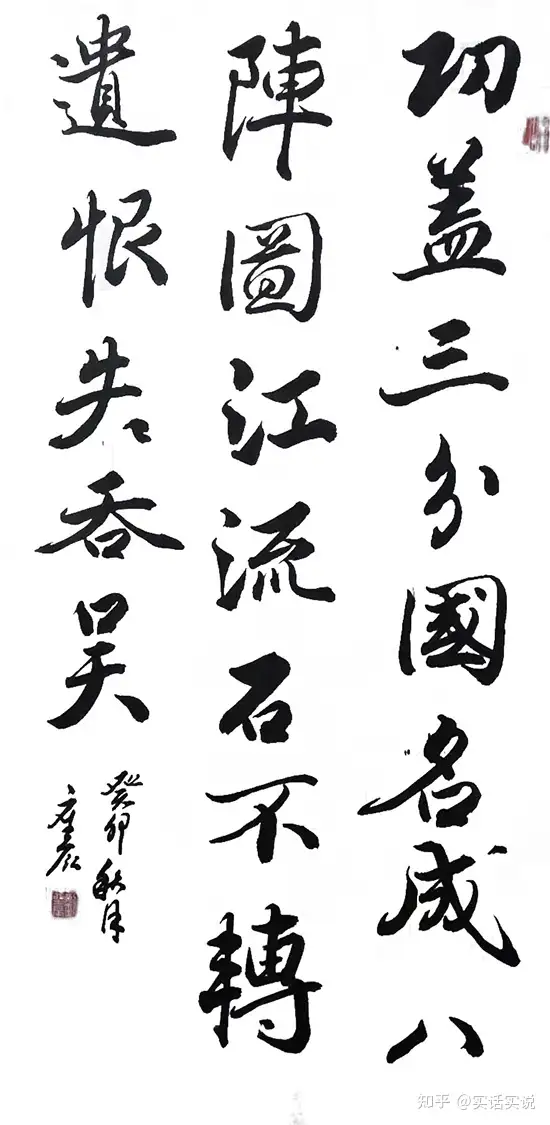 功盖三分國名成八
陣圖江流石不轉
遺恨失吞吴
癸卯秋月
知乎 @实话实说